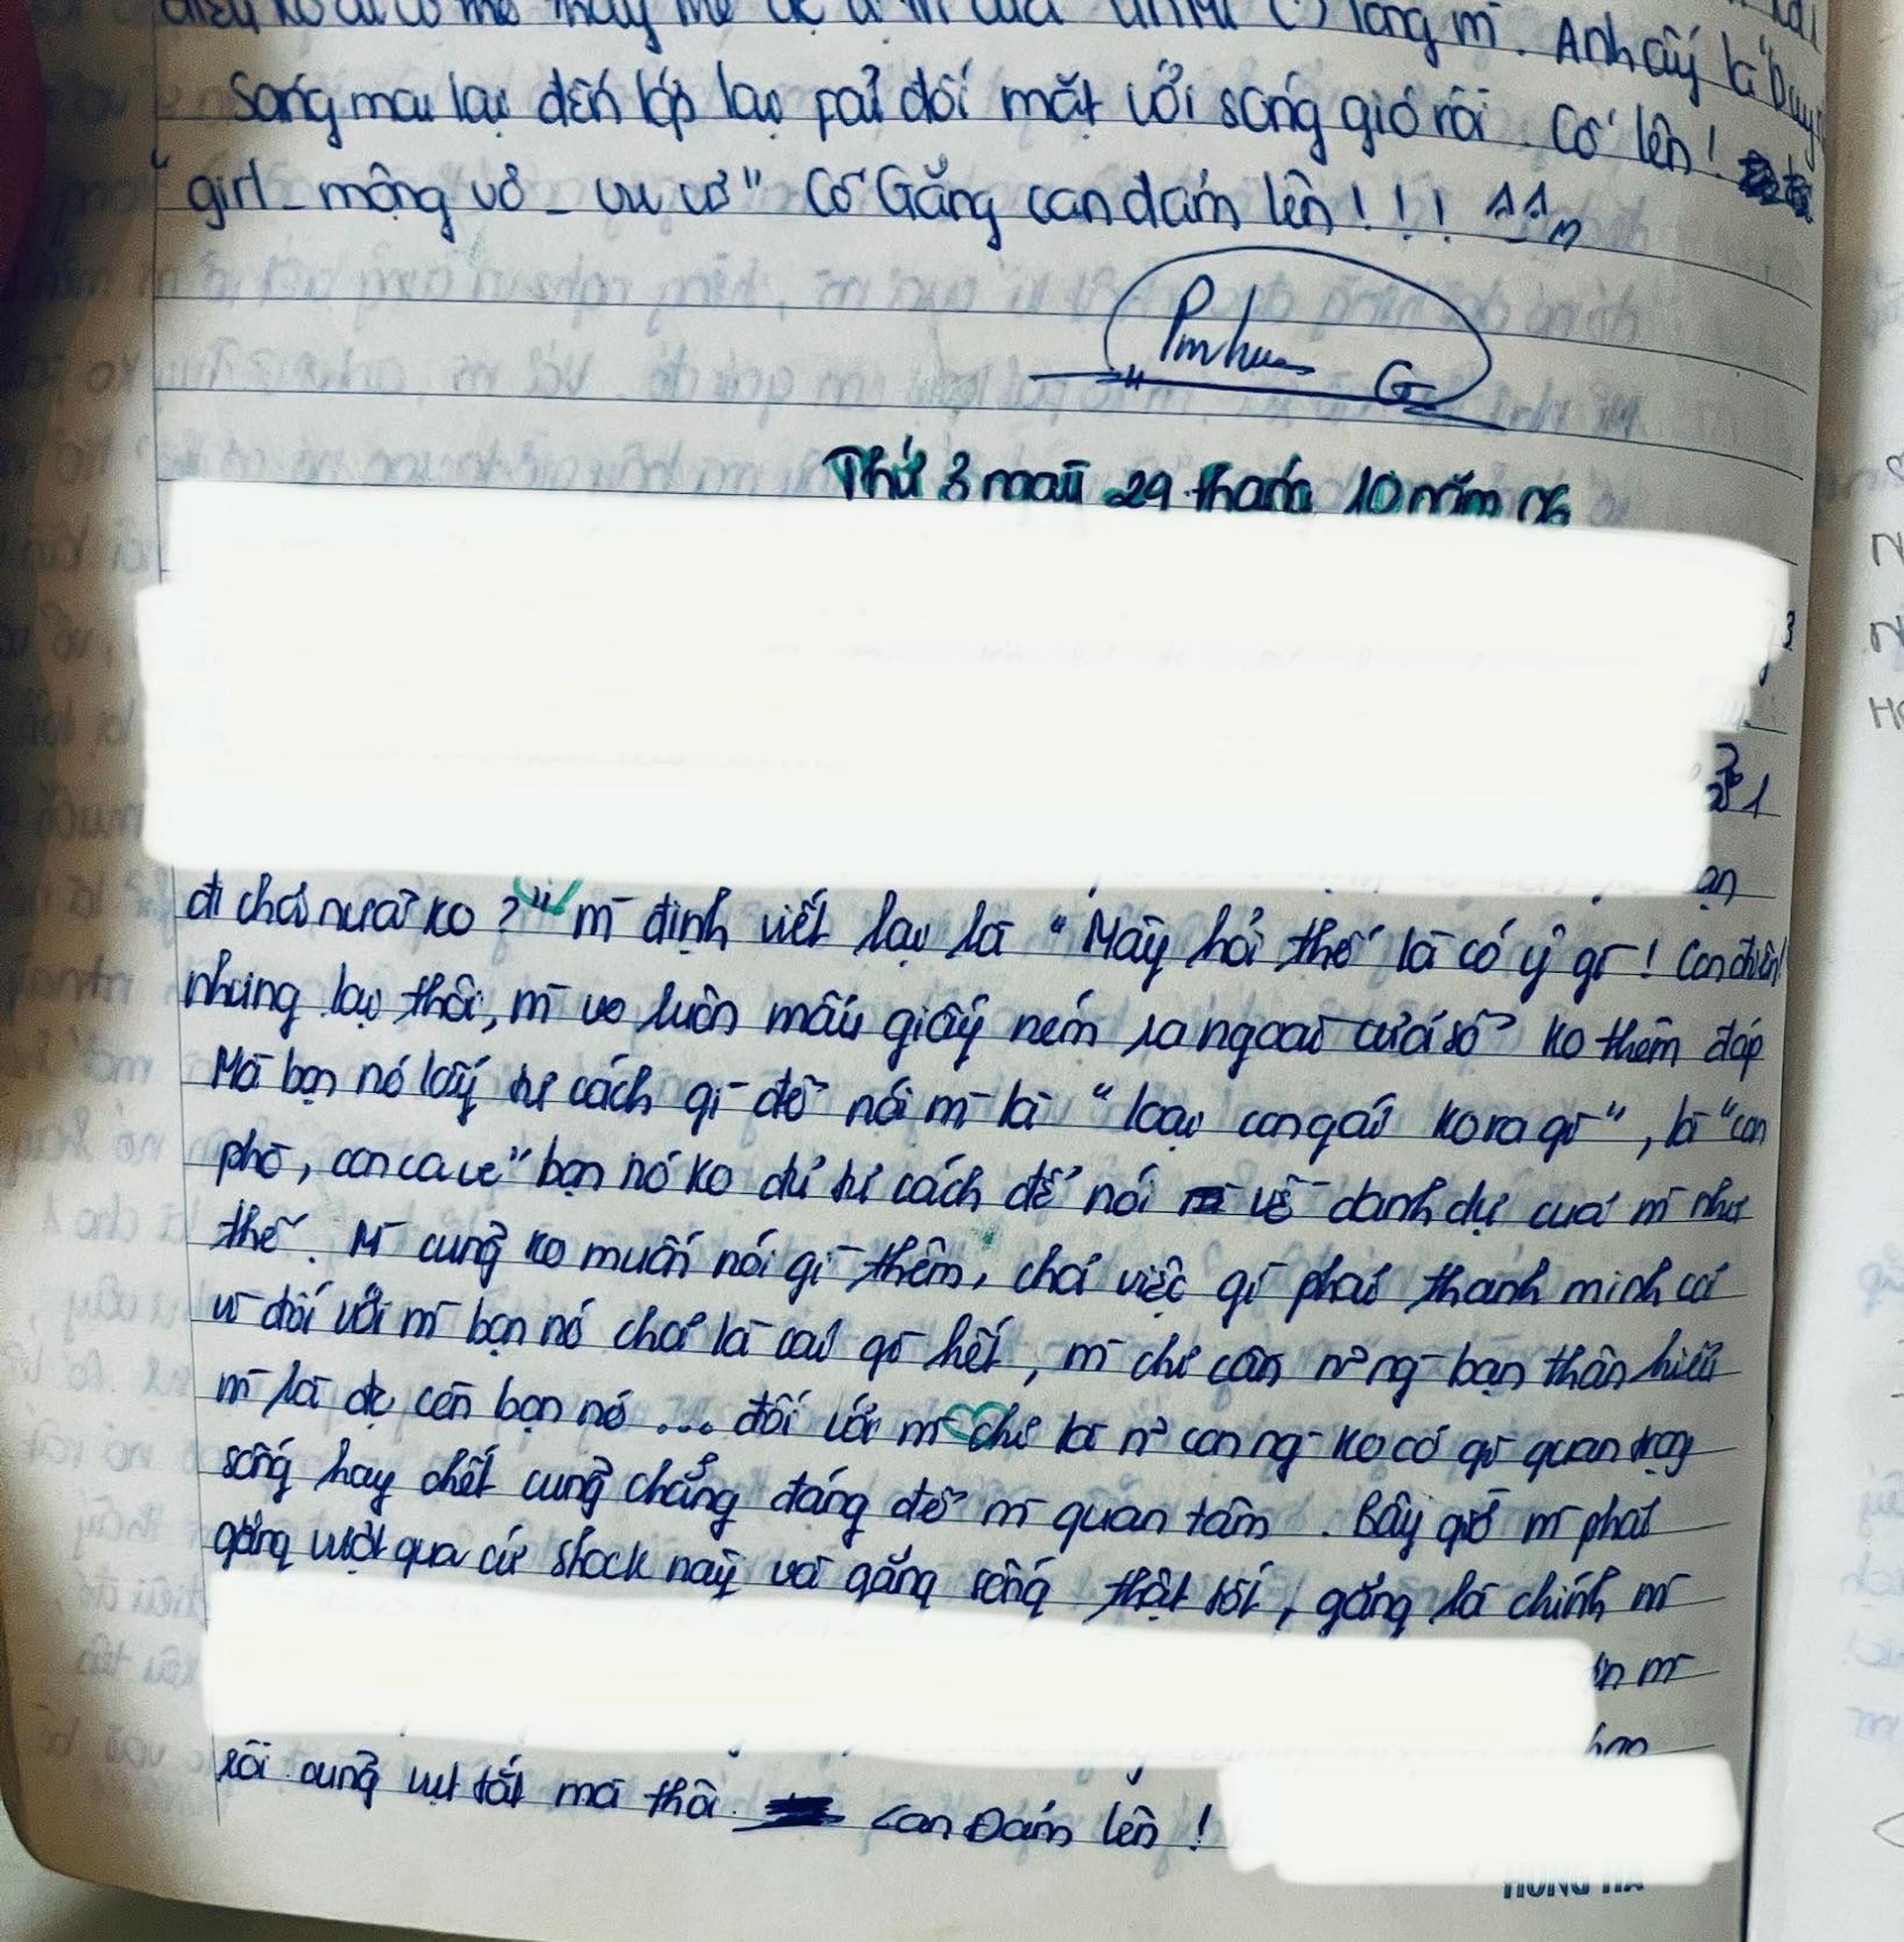 lòng m̀. Anh ấy là "Duy
Sáng mai lại đến lớp lại fải đối mặt với sóng gió rồi. Cố lên!
"girl_mộng vỡ_vu vơ" Cố Gắng can đảm lên!!! ^_^
G
Thứ 3 ngày 29 tháng 10 năm 06
3
1
ạn
đi chơi nữa ko?" m̀ định viết lại là "Mày hỏi thế là có ý gì! Con điên!
nhưng lại thôi, m̀ vo luôn mẩu giấy ném ra ngoài cửa sổ ko thèm đáp
Mà bọn nó lấy tư cách gì để nói m̀ là "loại con gái ko ra gì", là "con
phò, con cave" bọn nó ko đủ tư cách để nói về danh dự của m̀ như
thế. M̀ cũng ko muốn nói gì thêm, chả việc gì phải thanh minh cả
vì đối với m̀ bọn nó chả là cái gì hết, m̀ chỉ cần n~ ng` bạn thân hiểu
m̀ là đc còn bọn nó ... đối với m̀ chỉ là n~ con ng` ko có gì quan trọng
sống hay chết cũng chẳng đáng để m̀ quan tâm. Bây giờ m̀ phải
gắng vượt qua cú shock này và gắng sống thật tốt, gắng là chính m̀
m̀
rồi cũng vụt tắt mà thôi. Can Đảm lên!
HỒNG HÀ